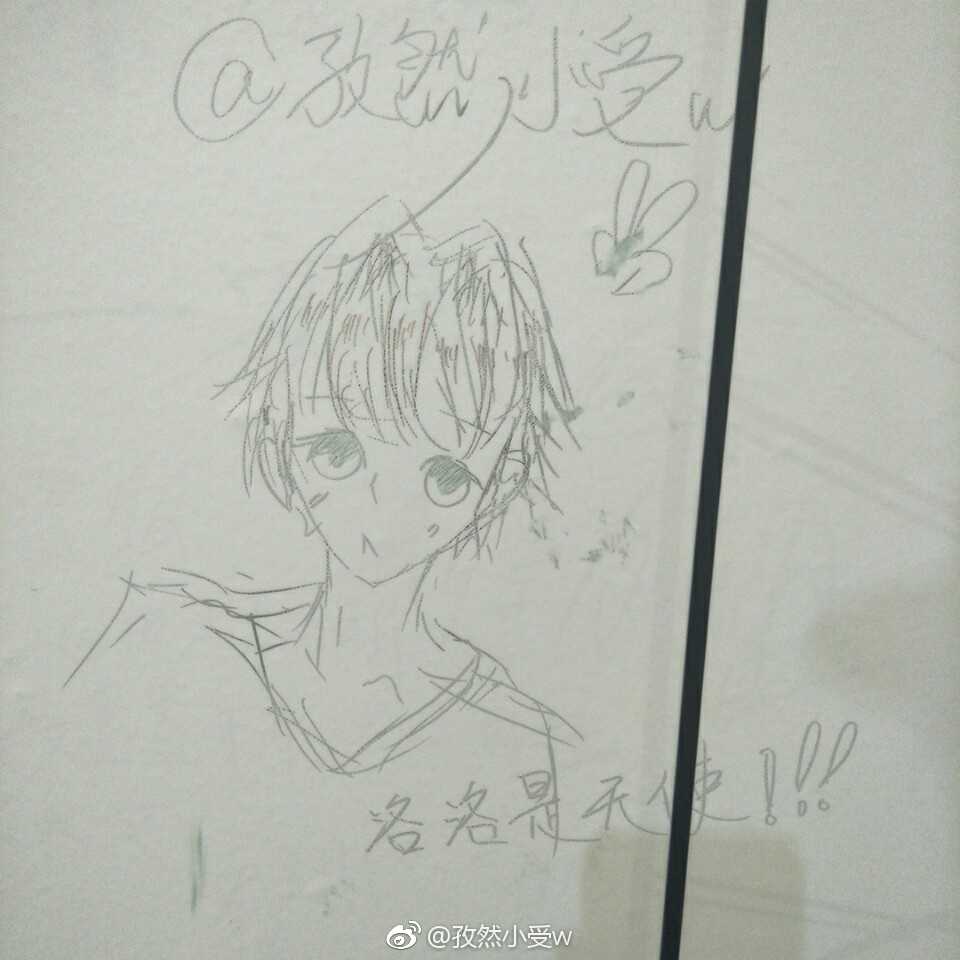 @孜然小受w
洛洛是天使!!!
@孜然小受w